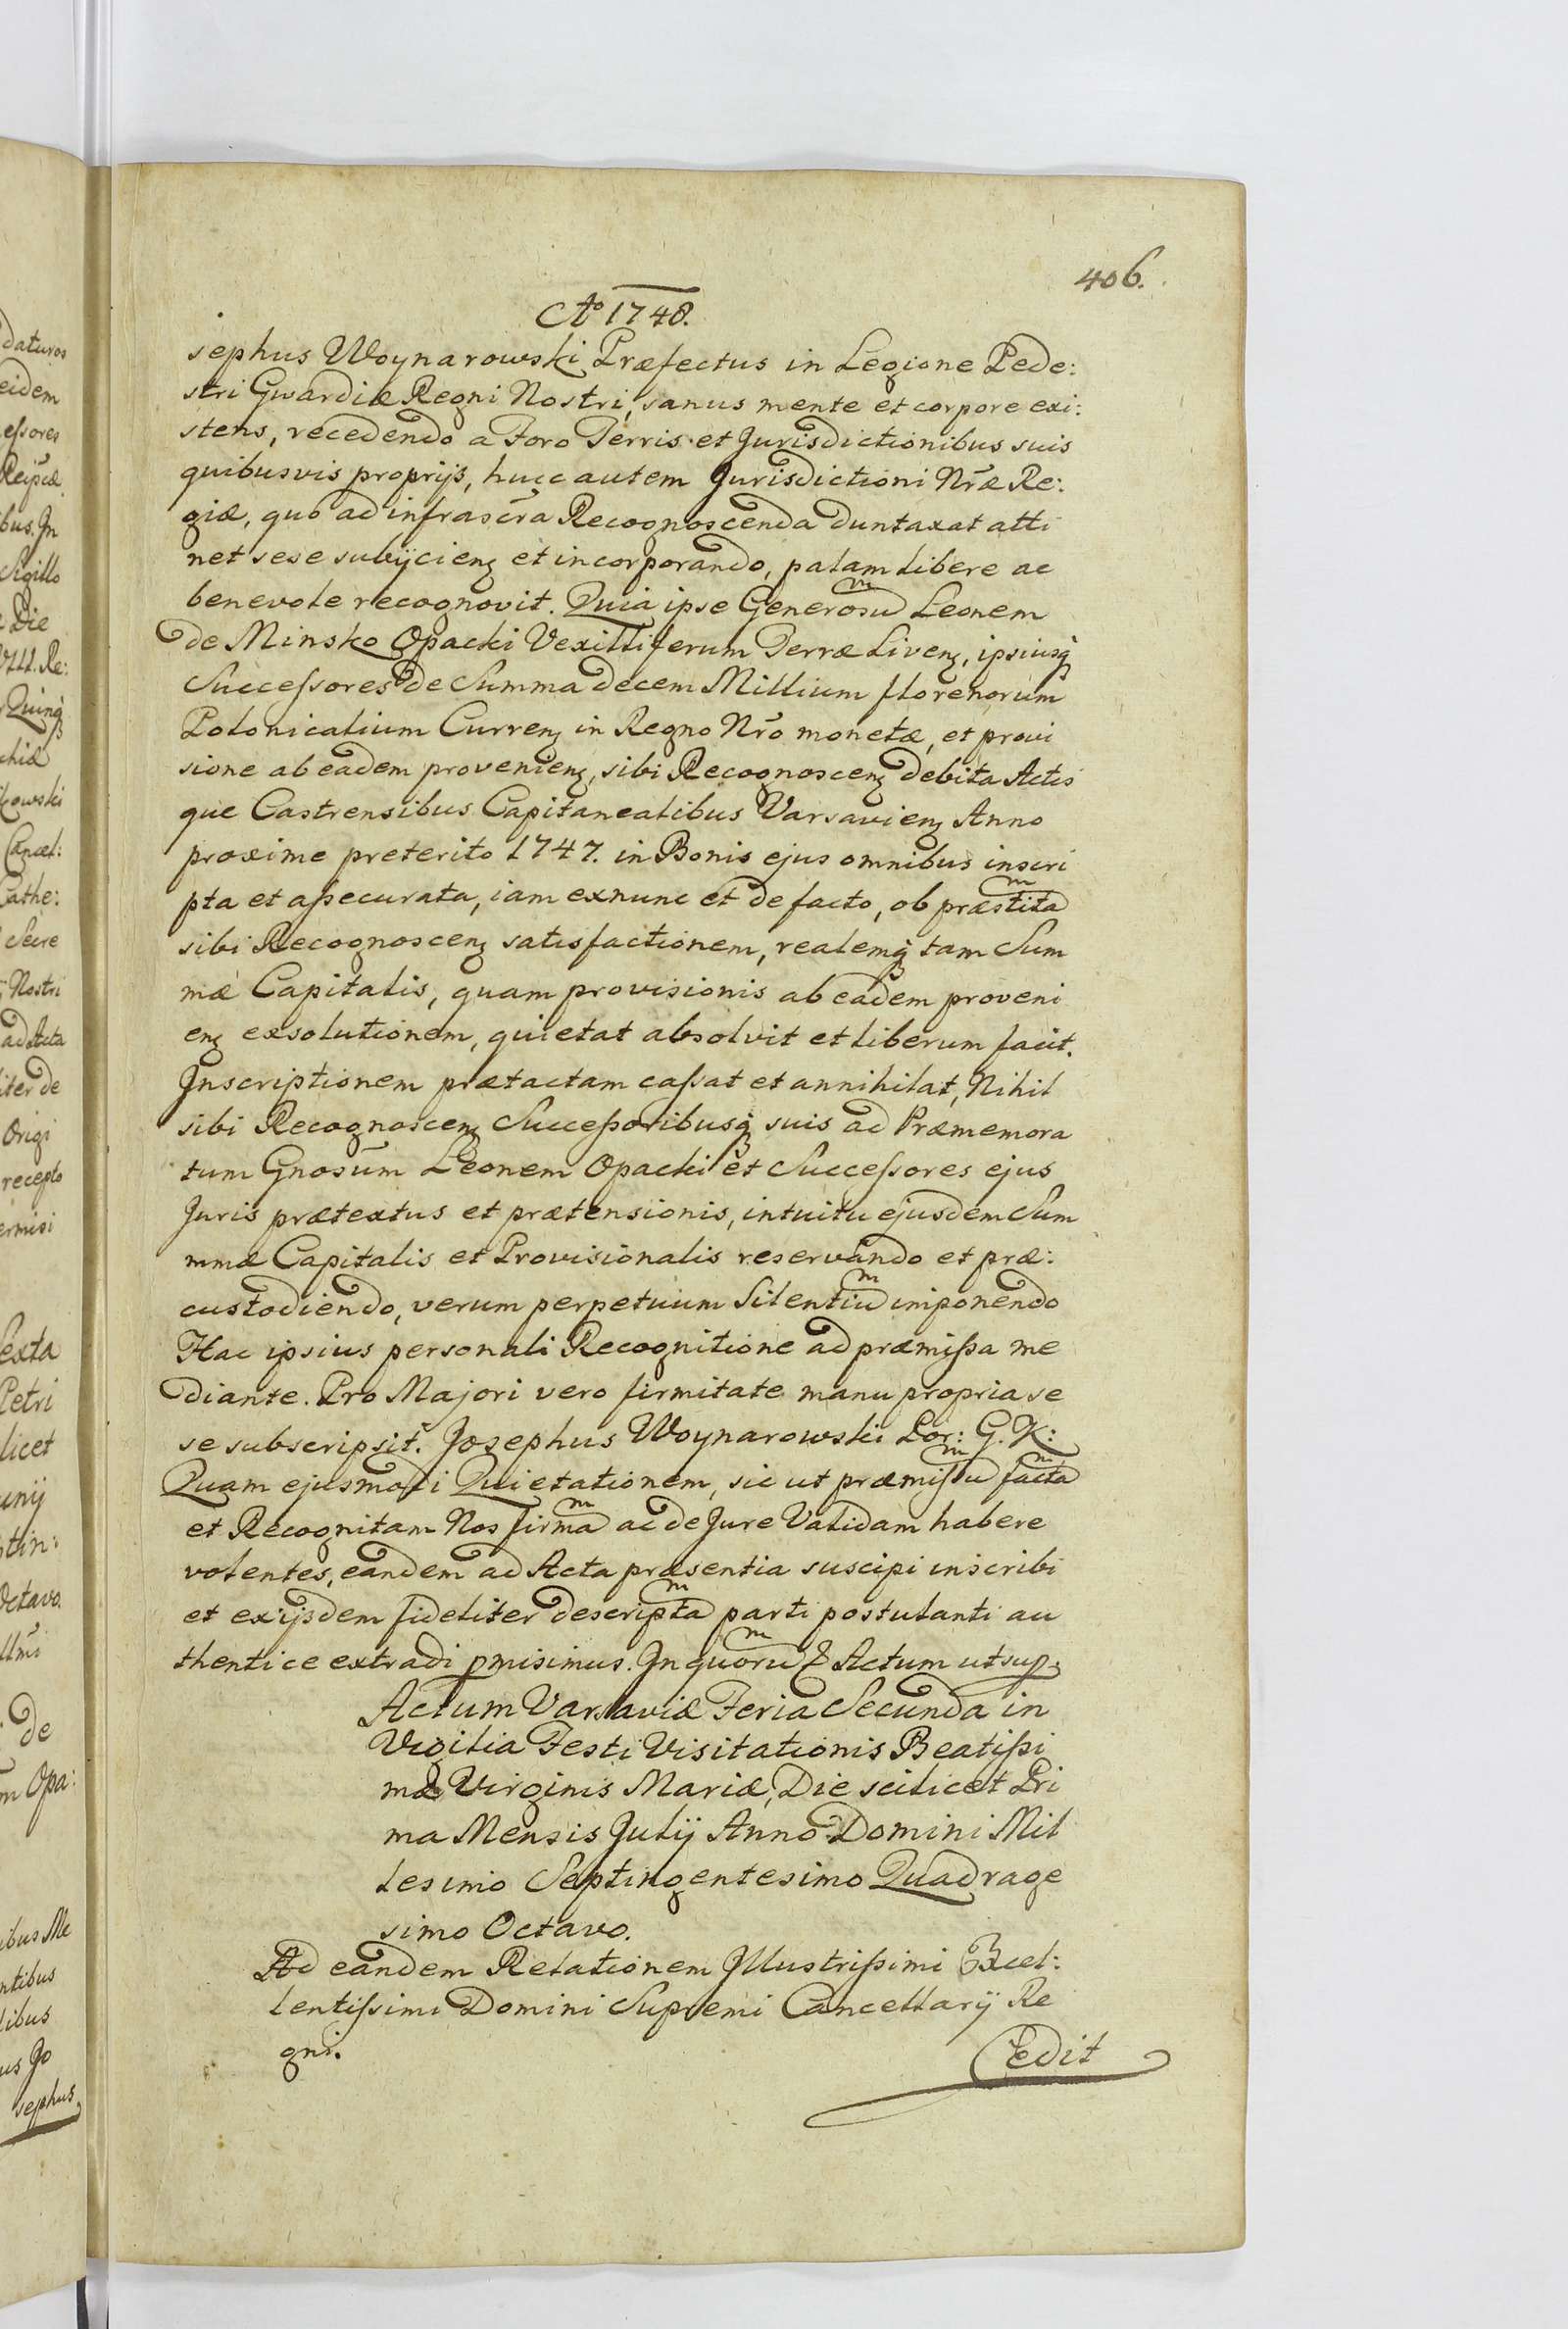 406.
Aº 1748.
sephus Woynarowski Præfectus in Legione Pede:
stri Gwardiæ Regni Nostri, sanus mente et corpore exi:
stens, recedendo a Foro Terris et Jurisdictionibus suis
quibusvis proprijs, huic autem Jurisdictioni Nr̃æ Re:
giæ, quo ad infrascr̃a Recognoscenda duntaxat atti
net sese subijcienꝫ et incorporando, palam libere ac
benevole recognovit. Quia ipse Generosuᵐ Leonem
de Minsko Opacki Vexilliferum Terræ Livenꝫ, ipsiusqꝫ
Successores de Summa decem Millium florenorum
Polonicalium Currenꝫ in Regno Nr̃o monetæ, et provi
sione ab eadem provenienꝫ, sibi Recognoscenꝫ debita Actis
que Castrensibus Capitanealibus Varsavienꝫ Anno
proxime preterito 1747. in Bonis ejus omnibus inscri
pta et assecurata, iam exnunc et de facto, ob præstitaᵐ
sibi Recognoscenꝫ satisfactionem, realemqꝫ tam Sum
mæ Capitalis, quam provisionis ab eadem proveni
enꝫ exsolutionem, quietat absolvit et liberum facit.
Inscriptionem prætactam cassat et annihilat, Nihil
sibi Recognoscenꝫ Successoribusqꝫ suis ad Præmemora
tum Gnosũm Leonem Opacki et Successores ejus
Juris prætextus et prætensionis, intuitu ejusdem Sum
mmæ Capitalis et Provisionalis reservando et præ:
custodiendo, verum perpetuum Silentiuᵐ imponendo
Hac ipsius personali Recognitione ad præmissa me
diante. Pro Majori vero firmitate manu propria se
se subscripsit. Josephus Woynarowski Por: G. K:
Quam ejusmodi Quietationem, sic ut præmissuᵐ factaᵐ
et Recognitam Nos firmaᵐ ac de Jure Validam habere
volentes, eandem ad Acta præsentia suscipi inscribi
et ex ijsdem fideliter descriptaᵐ parti postulanti au
thentice extradi pmisimus. In quoruᵐ & Actum ut sup.
Actum Varsaviæ Feria Secunda in
Vigilia Festi Visitationis Beatissi
mæ Virginis Mariæ, Die scilicet Pri
ma Mensis Julij Anno Domini Mil
lesimo Septingentesimo Quadrage
simo Octavo.
Ad eandem Relationem Illustrissimi Excel:
lentissimi Domini Supremi Cancellarij Re
gni.
Cedit
daturos
eidem
essores
bus. In
Sigillo
Die
VIII. Re:
Quinqꝫ
chiæ
kowski
Cancel:
Cathe:
Secre
Nostri
ad Acta
iter de
Origi
recepto
ermisi
Sexta
Petri
licet
unij
tin:
Octavo.
de
m Opa:
ibus Me
ntibus
libus
us Jo
sephus